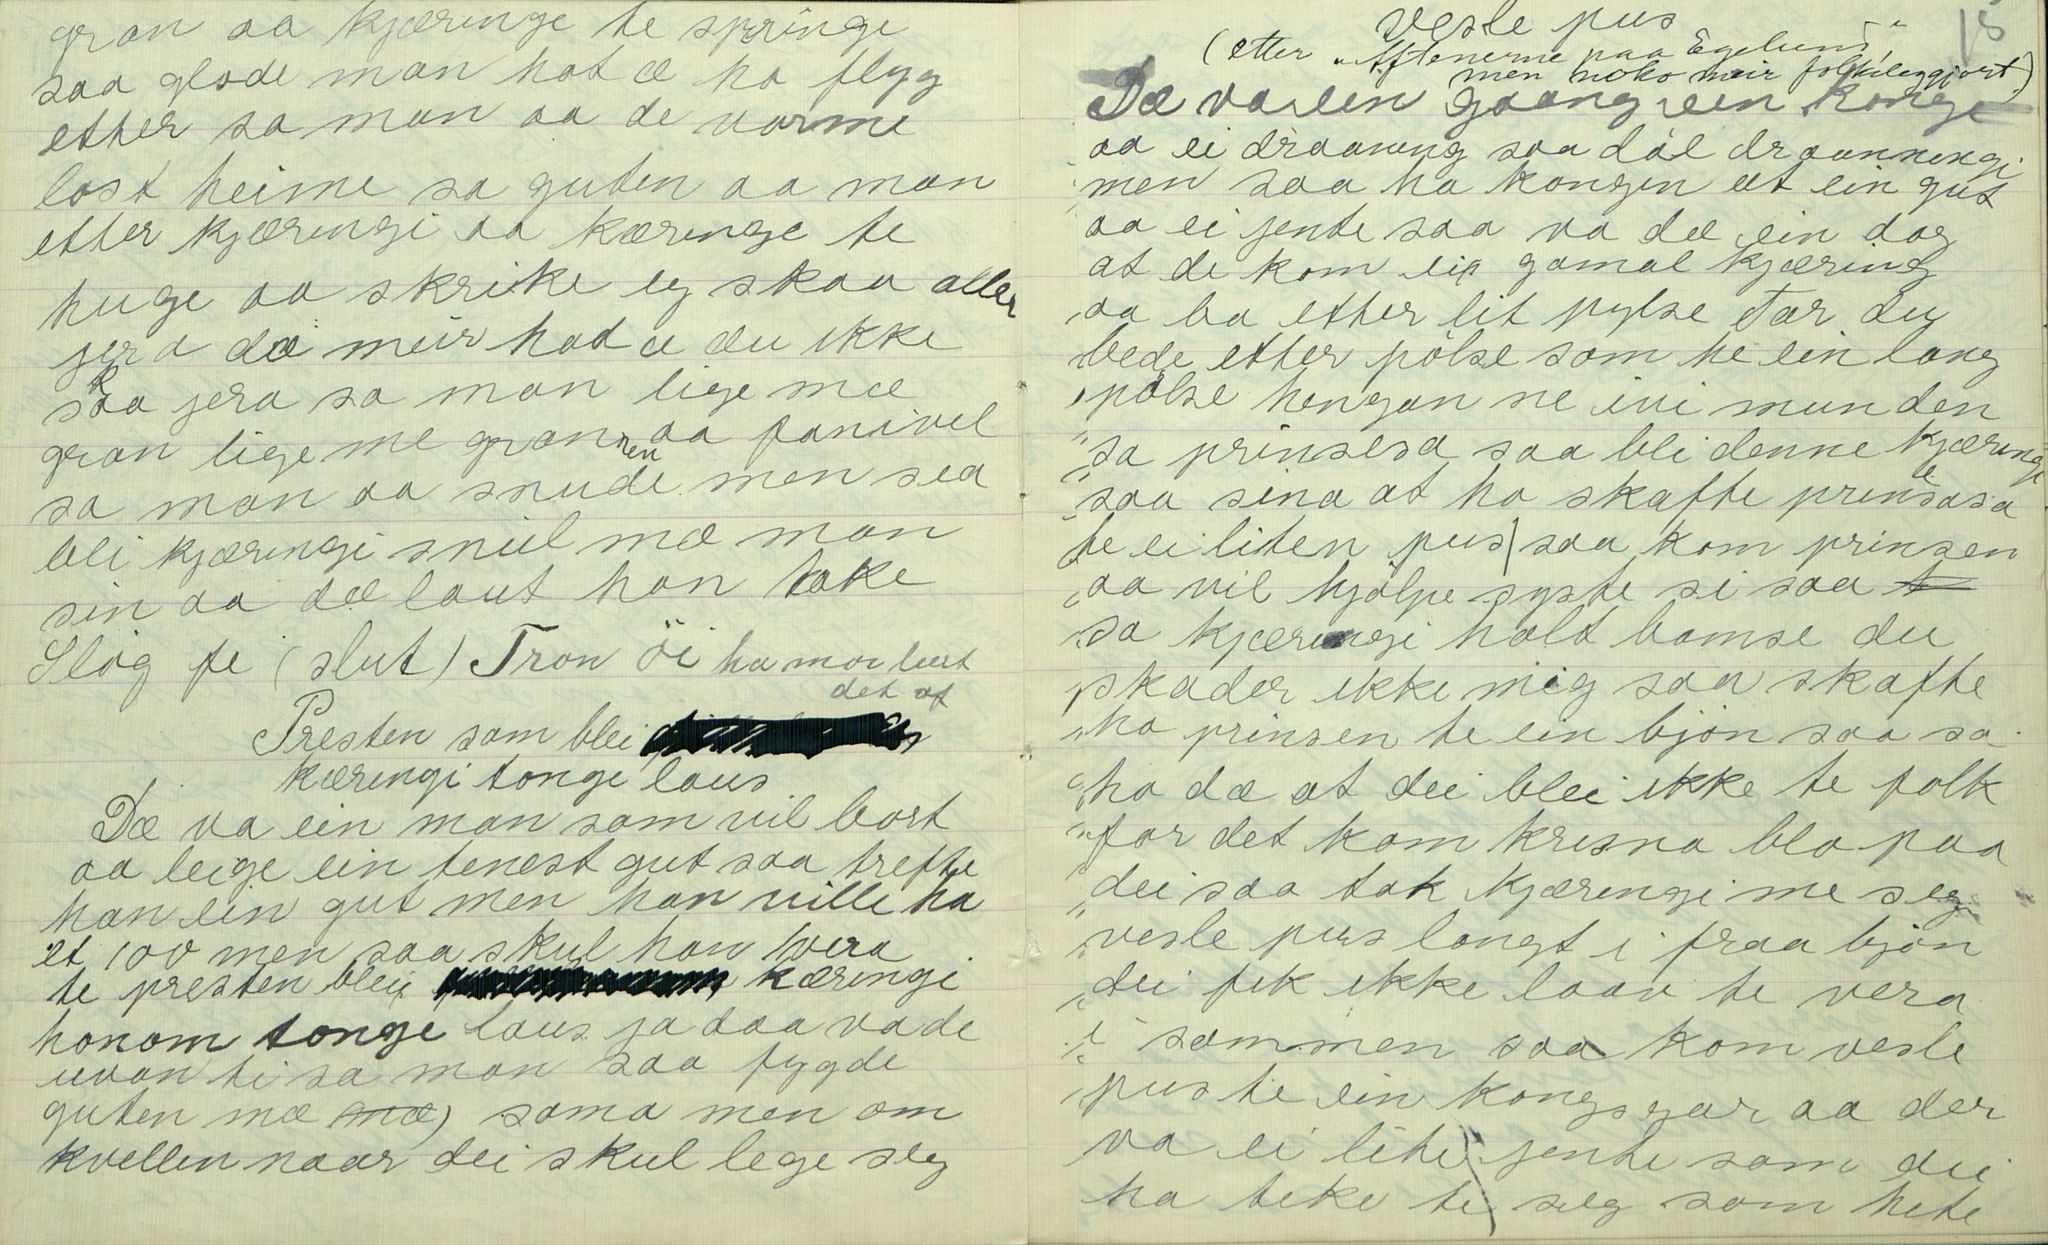 gran aa kjæringe te springe
saa glode man hot æ ho flyg
etter sa man aa de varme
lost heime sa guten aa man
etter kjæringi aa kæringe te
huge aa skrike eg skaa aller
jera dæ meir hot æ du ikke
skaa jera sa man lige mæ
gran lige me grannen aa fanivel
sa man aa snude men sea
bli kjæringi snil mæ man
sin aa dæ laut han take
Slóg te (slut) Tron öi ha mor lært
det af
Presten som blei
kæringi tonge laus
Dæ va ein man som vil bort
aa leige ein tenest gut saa trefte
han ein gut men han ville ha
et 100 men saa skul han vera
te presten blei kæringi
honom tonge laus ja daa va de
uvan ti sa man saa fygde
guten mæ mæ) sama men om
kvellen naar dei skul lege seg
15
Vesle pus
(etter "Aftenerne paa Egelund",
men noko meir folkeleggjort.)
Dæ va ein gaang ein konge
aa ei draaning saa dól draanningi
men saa ha kongin æt ein gut
aa ei jente saa va dæ ein dag
at de kom ein gamal kjæring
aa ba etter lit pylse Tør du
bede etter pölse som he ein lang
pölse hengan ne ivi munden
sa prinsesa saa bli denne kjæringe
saa sina at ho skafte prinsesa
te ei liten pus saa kom prinsen
aa vil hjólpe syste si saa t
sa kjæringi holt bamse du
skader ikke mig saa skafte
ho prinsen te ein bjön saa sa
ho dæ at dei blei ikke te folk
for det kom kresna blo paa
dei saa tok kjæringi me seg
vesle pus langt i fraa bjön
dei fek ikke laav te vera
i sammen saa kom vesle
pus te ein kongsgar aa der
va ei lite jente som dei
ha teke te seg som hete